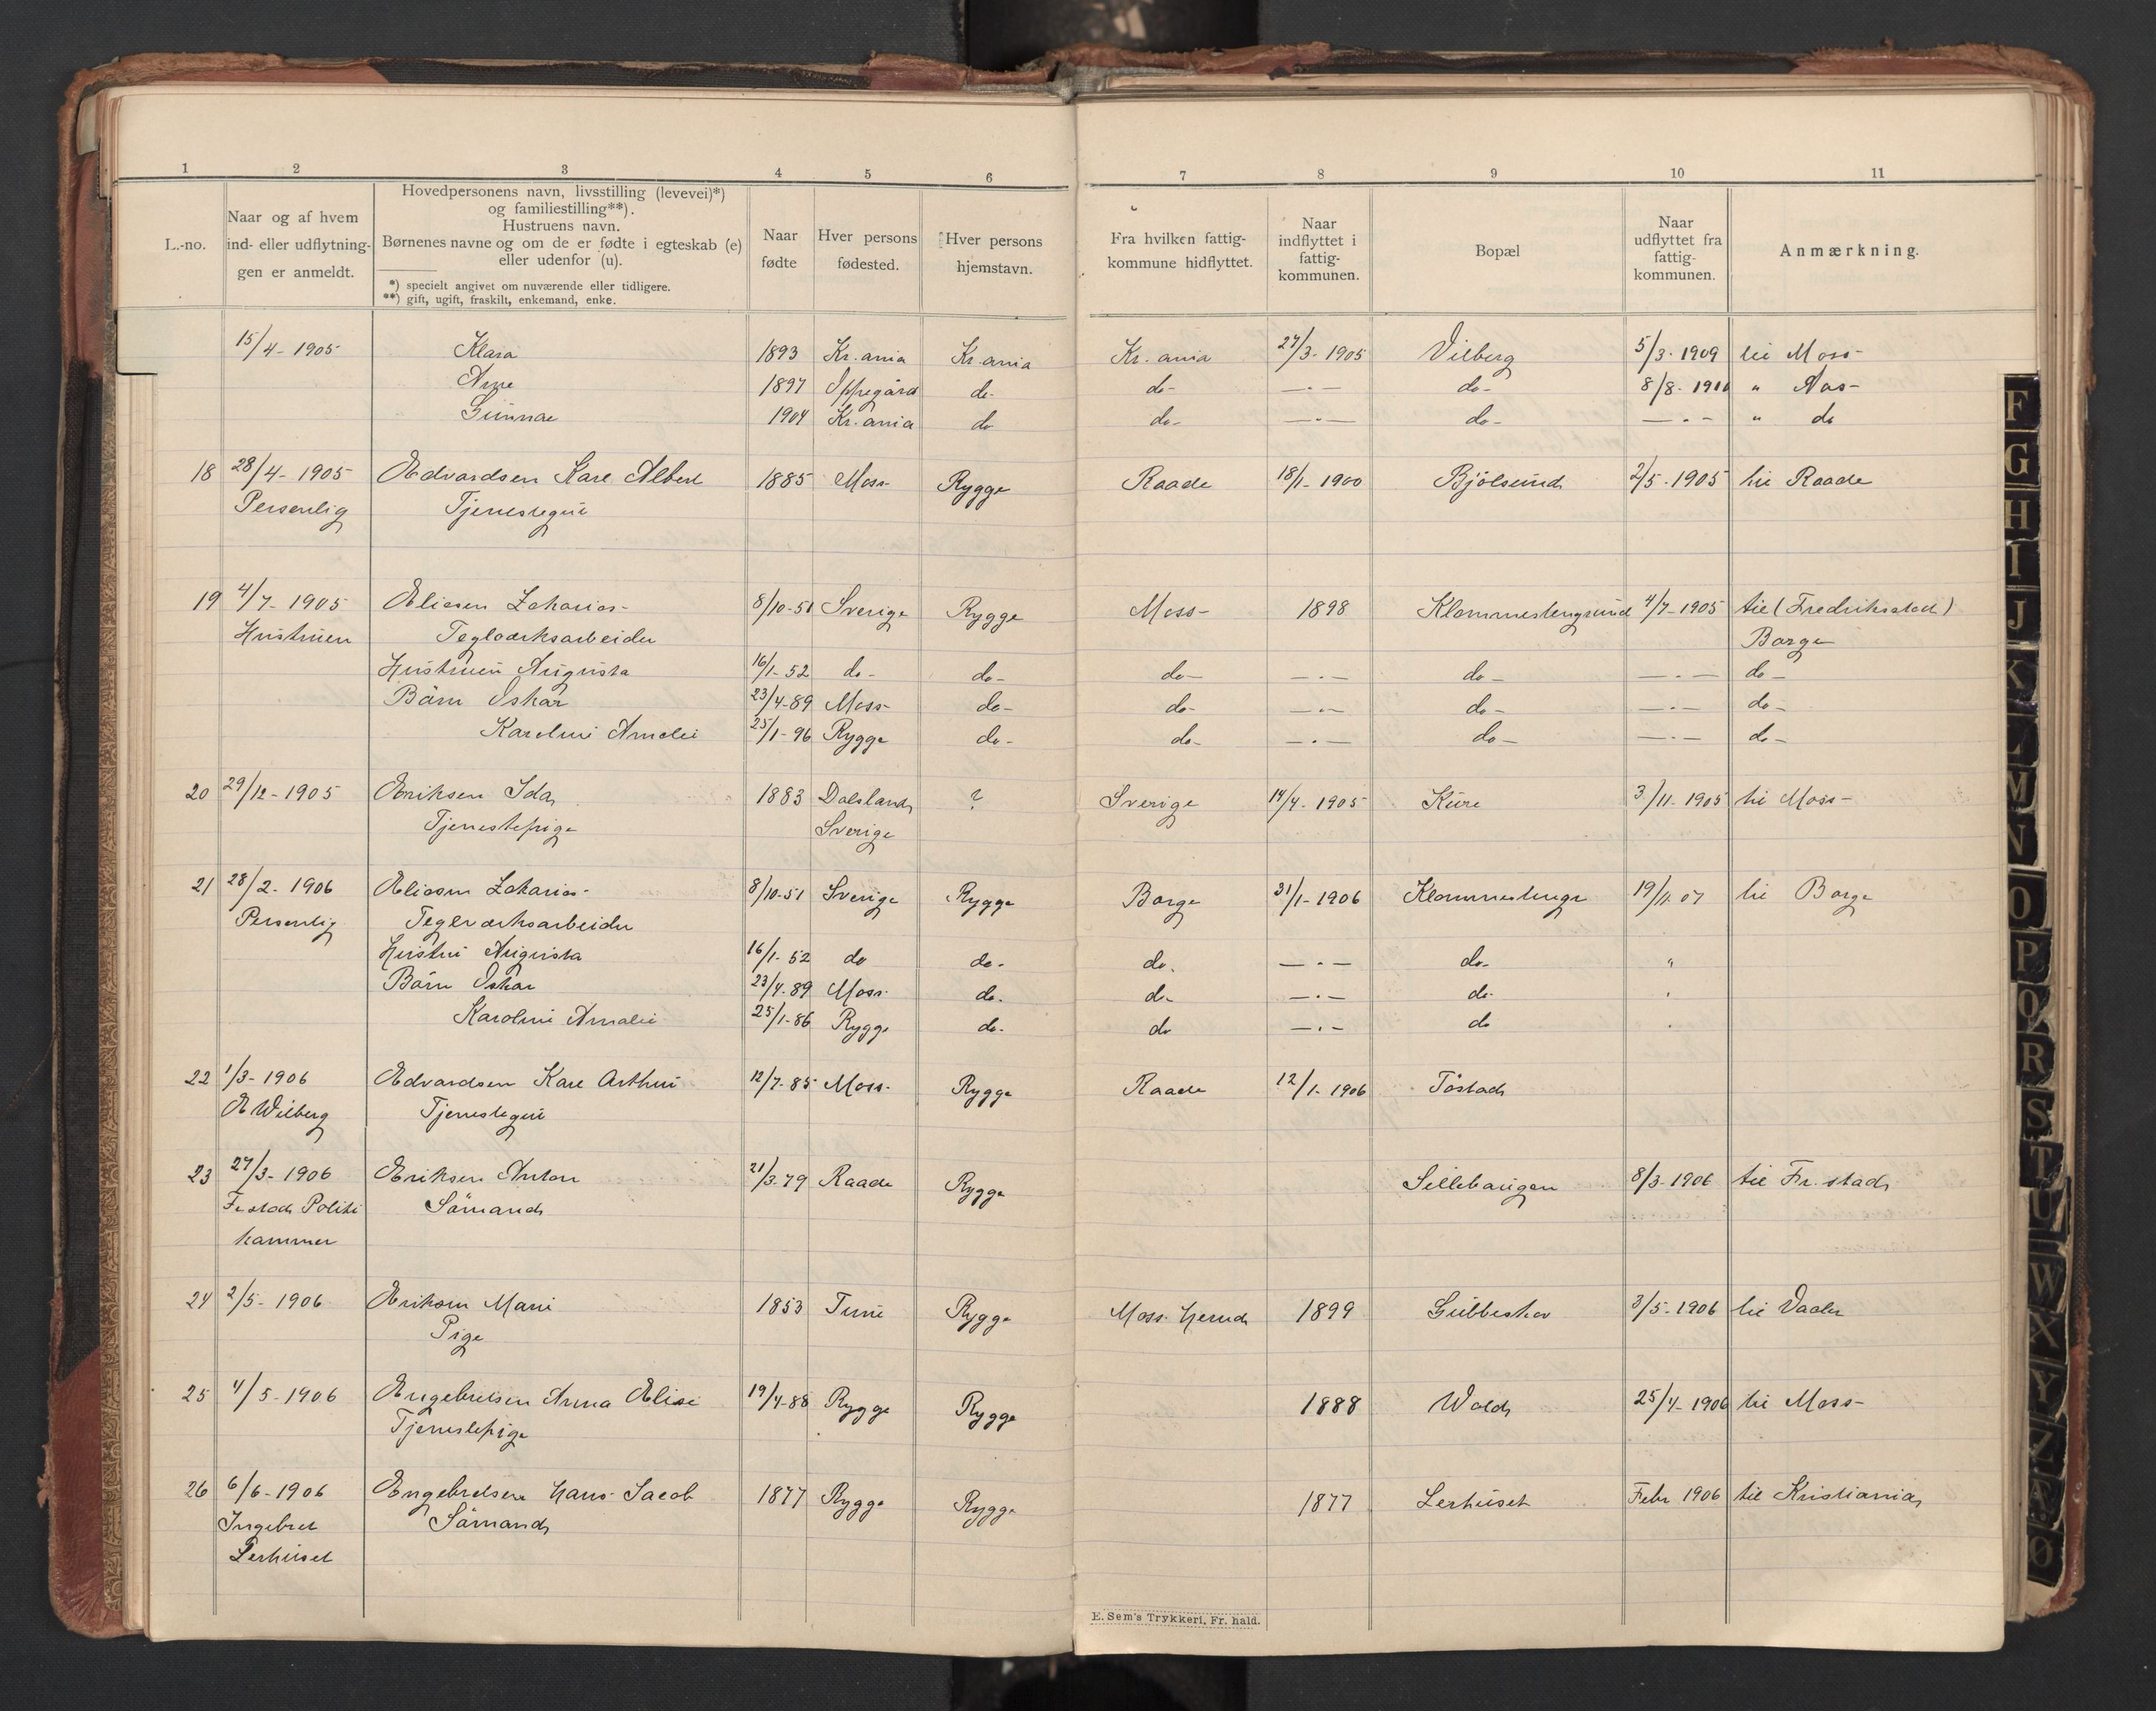 1 2 3 4 5 6 7 8 9 10 11
L.-no.
Naar og af hvem
ind- eller udflytnin-
gen er anmeldt.
Hovedpersonens navn, livsstilling (levevei)*)
og familiestilling**).
Hustruens navn.
Børnenes navne og om de er fødte i egteskab (e)
eller udenfor (u).
*) specielt angivet om nuværende eller tidligere.
**) gift, ugift, fraskilt, enkemand, enke.
Naar
fødte
Hver persons
fødested.
Hver persons
hjemstavn.
Fra hvilken fattig-
kommune hidflyttet.
Naar
indflyttet i
fattig-
kommunen.
Bopæl
Naar
udflyttet fra
fattig-
kommunen.
Anmærkning.
15/4-1905 Klara 1893 Kr.ania Kr.ania Kr.ania 27/3-1905 Vilberg 5/3-1909 til Moss-
Arne 1897 Oppegård do- do- —"— do- 8/8-1910 " Aas-
Gunnar 1904 Kr.ania do do- —"— do- —"— " do
18 28/4-1905 Edvardsen Karl Albert 1885 Moss- Rygge Raade 18/1-1900 Bjölsund 2/5-1905 til Raade
Personlig Tjenestegut
19 4/7-1905 Eliasen Zakarias- 8/10-51 Sverige Rygge Moss- 1898 Klommestengrund 4/7-1905 til (Fredrikstad)
Hustruen Teglværksarbeider Borge
Hustruen Augusta 16/1-52 do- do- do- —"— do- —"— do-
Börn Oskar 23/4-89 Moss- do- do- —"— do- —"— do-
Karoline Amalie 25/1-96 Rygge do- do- —"— do- —"— do-
20 29/12-1905 Eriksen Ida 1883 Dalsland ? Sverige 14/4-1905 Kure 3/11-1905 til Moss-
Tjenestepige Sverige
21 28/2-1906 Eliasen Zakarias- 8/10-51 Sverige Rygge Borge 31/1-1906 Klommestenge 19/11 07 til Borge
Personlig Teglværksarbeider
Hustru Augusta 16/1-52 do do- do. —"— do- "
Börn Oskar 23/4-89 Moss- do. do- —"— do- "
Karoline Amalie 25/1-86 Rygge do- do —"— do "
22 1/3-1906 Edvardsen Karl Arthur 12/7-85 Moss- Rygge Raade 12/1-1906 Töstad
E Wilberg Tjenestegut
23 27/3-1906 Eriksen Anton 21/3-79 Raade Rygge Sillebaugen 8/3-1906 til Fr.stad
Fr.stad Politi Sömand
kammer
24 2/5-1906 Eriksen Marie 1853 Tune Rygge Moss herred 1899 Gubbeskov 3/5-1906 til Vaaler
Pige
25 4/5-1906 Engebretsen Anna Elise 19/4-88 Rygge Rygge 1888 Wold 25/4-1906 til Moss-
Tjenestepige
26 6/6-1906 Engebretsen Hans Jacob 1877 Rygge Rygge 1877 Lerhuset Febr 1906 til Kristiania
Ingebret Sömand
Lerhuset
E. Sem's Trykkeri, Fr. hald.
F
G
H
I
J
K
L
M
N
O
P
Q
R
S
T
U
W
X
Y
Z
Æ
Ø